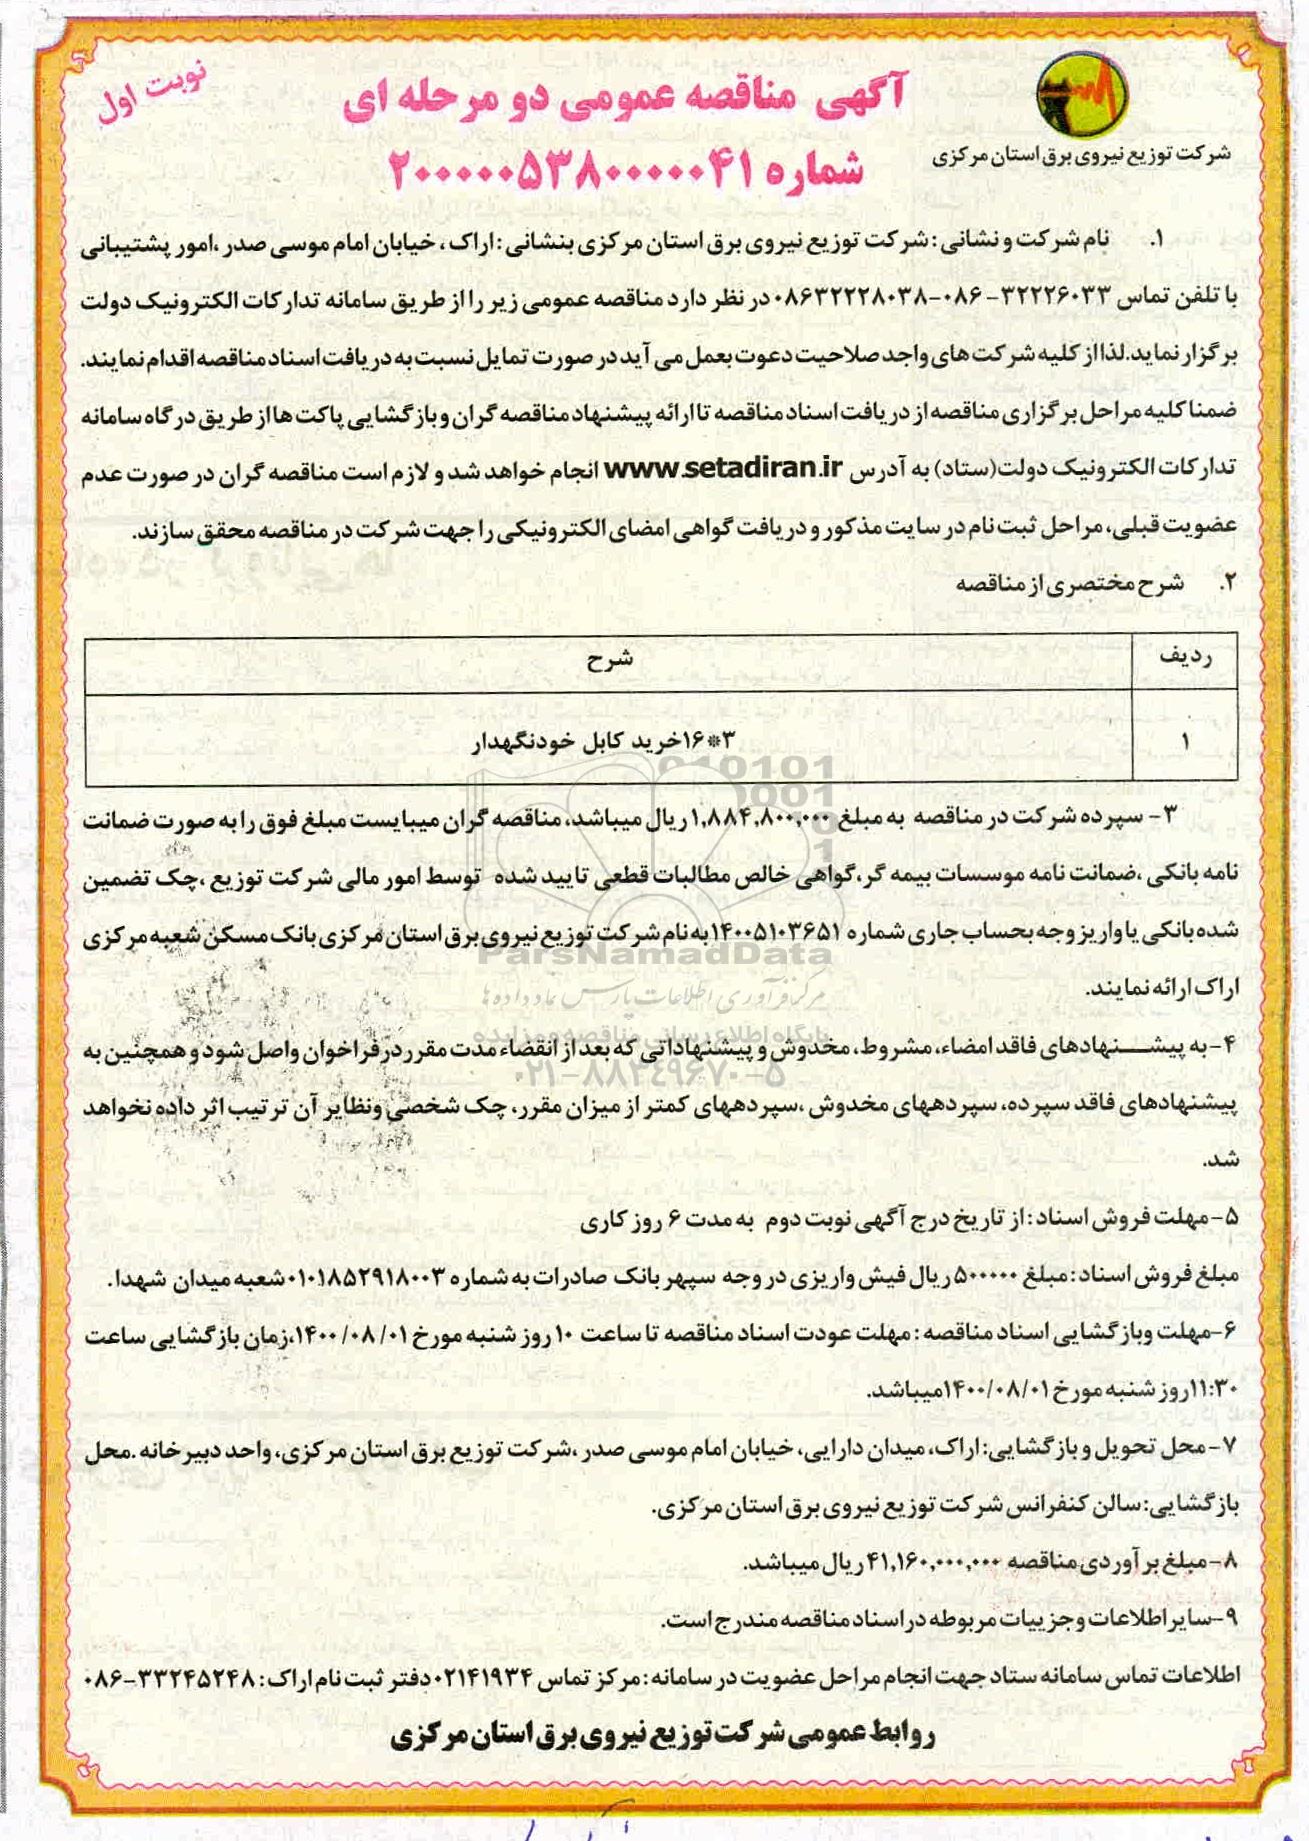 نوبت اول
آگهی مناقصه عمومی دو مرحله ای
شماره ۲۰۰۰۰۰۵۳۸۰۰۰۰۰۴۱
شرکت توزیع نیروی برق استان مرکزی
۱. نام شرکت و نشانی : شرکت توزیع نیروی برق استان مرکزی بنشانی : اراک ، خیابان امام موسی صدر ،امور پشتیبانی
با تلفن تماس ۳۲۲۲۶۰۳۳- ۰۸۶-۰۸۶۳۲۲۲۸۰۳۸ در نظر دارد مناقصه عمومی زیر را از طریق سامانه تدارکات الکترونیک دولت
برگزار نماید.لذا از کلیه شرکت های واجد صلاحیت دعوت بعمل می آید در صورت تمایل نسبت به دریافت اسناد مناقصه اقدام نمایند.
ضمنا کلیه مراحل برگزاری مناقصه از دریافت اسناد مناقصه تا ارائه پیشنهاد مناقصه گران و بازگشایی پاکت ها از طریق درگاه سامانه
تدارکات الکترونیک دولت(ستاد) به آدرس www.setadiran.ir انجام خواهد شد و لازم است مناقصه گران در صورت عدم
عضویت قبلی، مراحل ثبت نام در سایت مذکور و دریافت گواهی امضای الکترونیکی را جهت شرکت در مناقصه محقق سازند.
۲. شرح مختصری از مناقصه
ردیف شرح
۱ ۳*۱۶خرید کابل خودنگهدار
۳- سپرده شرکت در مناقصه به مبلغ ۱,۸۸۴,۸۰۰,۰۰۰ ریال میباشد، مناقصه گران میبایست مبلغ فوق را به صورت ضمانت
نامه بانکی ،ضمانت نامه موسسات بیمه گر،گواهی خالص مطالبات قطعی تایید شده توسط امور مالی شرکت توزیع ،چک تضمین
شده بانکی یا واریز وجه بحساب جاری شماره ۱۴۰۰۵۱۰۳۶۵۱به نام شرکت توزیع نیروی برق استان مرکزی بانک مسکن شعبه مرکزی
اراک ارائه نمایند.
۴-به پیشنهادهای فاقد امضاء، مشروط، مخدوش و پیشنهاداتی که بعد از انقضاء مدت مقرر در فراخوان واصل شود و همچنین به
پیشنهادهای فاقد سپرده، سپردههای مخدوش ،سپردههای کمتر از میزان مقرر، چک شخصی ونظایر آن ترتیب اثر داده نخواهد
شد.
۵-مهلت فروش اسناد : از تاریخ درج آگهی نوبت دوم به مدت ۶ روز کاری
مبلغ فروش اسناد : مبلغ ۵۰۰۰۰۰ ریال فیش واریزی در وجه سپهر بانک صادرات به شماره ۰۱۰۱۸۵۲۹۱۸۰۰۳شعبه میدان شهدا .
۶-مهلت وبازگشایی اسناد مناقصه : مهلت عودت اسناد مناقصه تا ساعت ۱۰ روز شنبه مورخ ۱۴۰۰/۰۸/۰۱،زمان بازگشایی ساعت
۱۱:۳۰روز شنبه مورخ ۱۴۰۰/۰۸/۰۱میباشد.
۷-محل تحویل و بازگشایی: اراک، میدان دارایی، خیابان امام موسی صدر ،شرکت توزیع برق استان مرکزی، واحد دبیرخانه .محل
بازگشایی: سالن کنفرانس شرکت توزیع نیروی برق استان مرکزی.
۸-مبلغ برآوردی مناقصه ۴۱,۱۶۰,۰۰۰,۰۰۰ ریال میباشد.
۹-سایر اطلاعات و جزییات مربوطه در اسناد مناقصه مندرج است.
اطلاعات تماس سامانه ستاد جهت انجام مراحل عضویت در سامانه : مرکز تماس ۰۲۱۴۱۹۳۴دفتر ثبت نام اراک : ۳۳۲۴۵۲۴۸-۰۸۶
روابط عمومی شرکت توزیع نیروی برق استان مرکزی
ParsNamadData
مرکز فرآوری اطلاعات پارس نماد داده ها
پایگاه اطلاع رسانی مناقصه و مزایده
۰۲۱-۸۸۳۴۹۶۷۰-۵